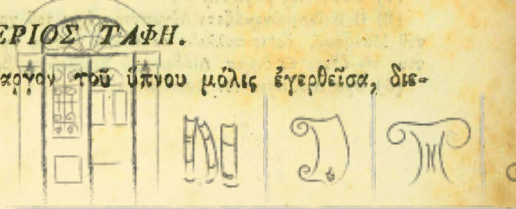 ΕΡΙΟΣ ΤΑΦΗ.
αργον τοῦ ὕπνου μόλις ἐγερθεῖσα, διε-